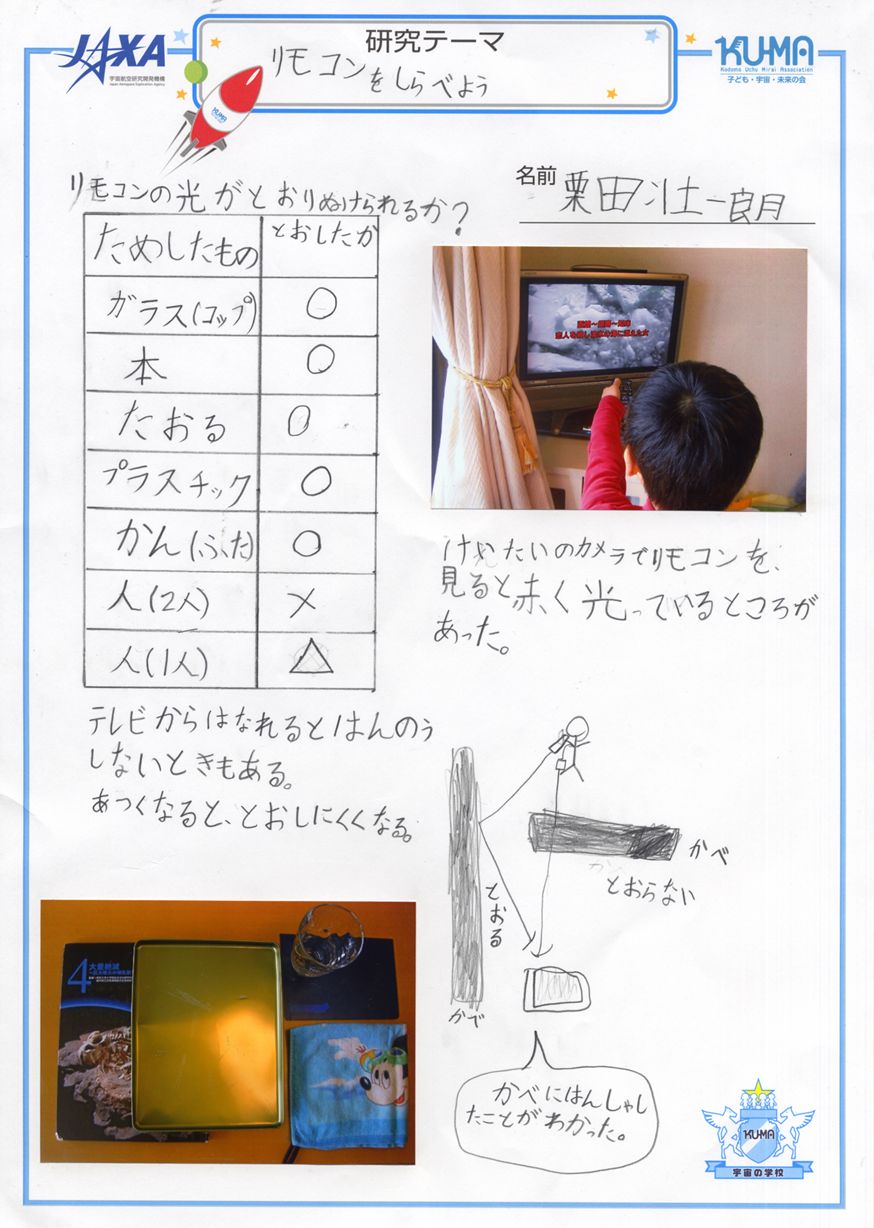 JAXA
宇宙航空研究開発機構
Japan Aerospace Exploration Agency
研究テーマ
リモコンをしらべよう
KUMA
Kodomo Uchu Mirai Association
子ども・宇宙・未来の会
KUMA
名前 栗田壮一朗
リモコンの光がとおりぬけられるか?
ためしたもの とおしたか
ガラス(コップ) ○
本 ○
たおる ○
プラスチック ○
かん(ふた) ○
人(2人) ×
人(1人) △
けいたいのカメラでリモコンを、
見ると赤く光っているところが
あった。
テレビからはなれるとはんのう
しないときもある。
あつくなると、とおしにくくなる。
かべ
とおらない
とおる
かべ
かべにはんしゃし
たことがわかった。
4 大量絶滅
KUMA
宇宙の学校